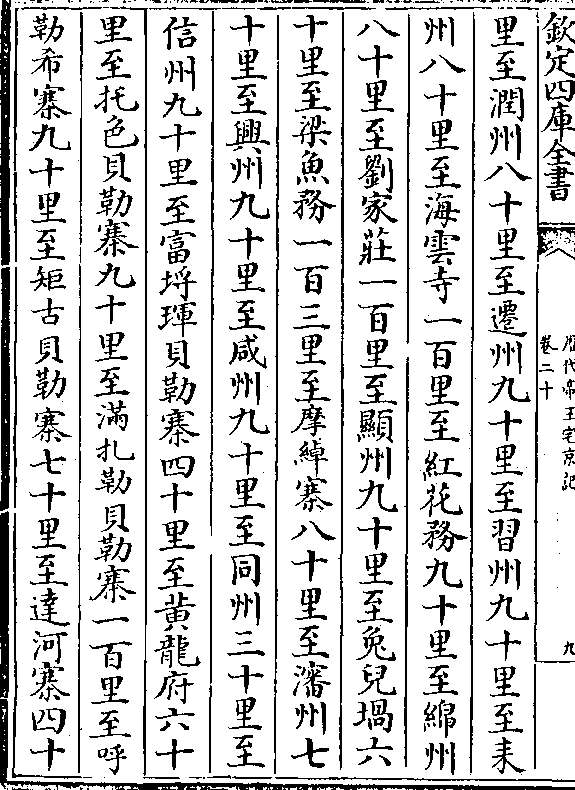 欽定四庫全書
歷代帝王宅京記
卷二十
九
里至潤州八十里至遷州九十里至習州九十里至耒
州八十里至海雲寺一百里至紅花務九十里至綿州
八十里至劉家莊一百里至顯州九十里至兔兒堝六
十里至梁魚務一百三里至摩綽寨八十里至瀋州七
十里至興州九十里至咸州九十里至同州三十里至
信州九十里至富埒琿貝勒寨四十里至黃龍府六十
里至托色貝勒寨九十里至滿扎勒貝勒寨一百里至呼
勒希寨九十里至矩古貝勒寨七十里至達河寨四十